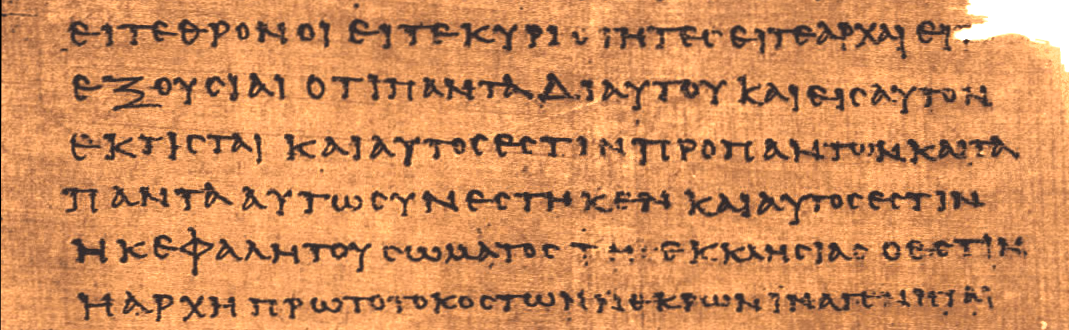 ΕΙΤΕΘΡΟΝΟΙ ΕΙΤΕΚΥΡΙΟΤΗΤΕC ΕΙΤΕΑΡΧΑΙ
ΕΞΟΥCΙΑΙ ΟΤΙΠΑΝΤΑ ΔΙΑΥΤΟΥ ΚΑΙΕΙCΑΥΤΟΝ
ΕΚΤΙCΤΑΙ ΚΑΙΑΥΤΟCΕCΤΙΝΠΡΟΠΑΝΤΩΝΚΑΙΤΑ
ΠΑΝΤΑΑΥΤΩCΥΝΕCΤΗΚΕΝ ΚΑΙΑΥΤΟCΕCΤΙΝ
ΗΚΕΦΑΛΗΤΟΥ CΩΜΑΤΟC ΤΗC ΕΚΚΛΗCΙΑC ΟΕCΤΙΝ
ΗΑΡΧΗ ΠΡΩΤΟΤΟΚΟCΤΩΝΝΕΚΡΩΝΙΝΑ